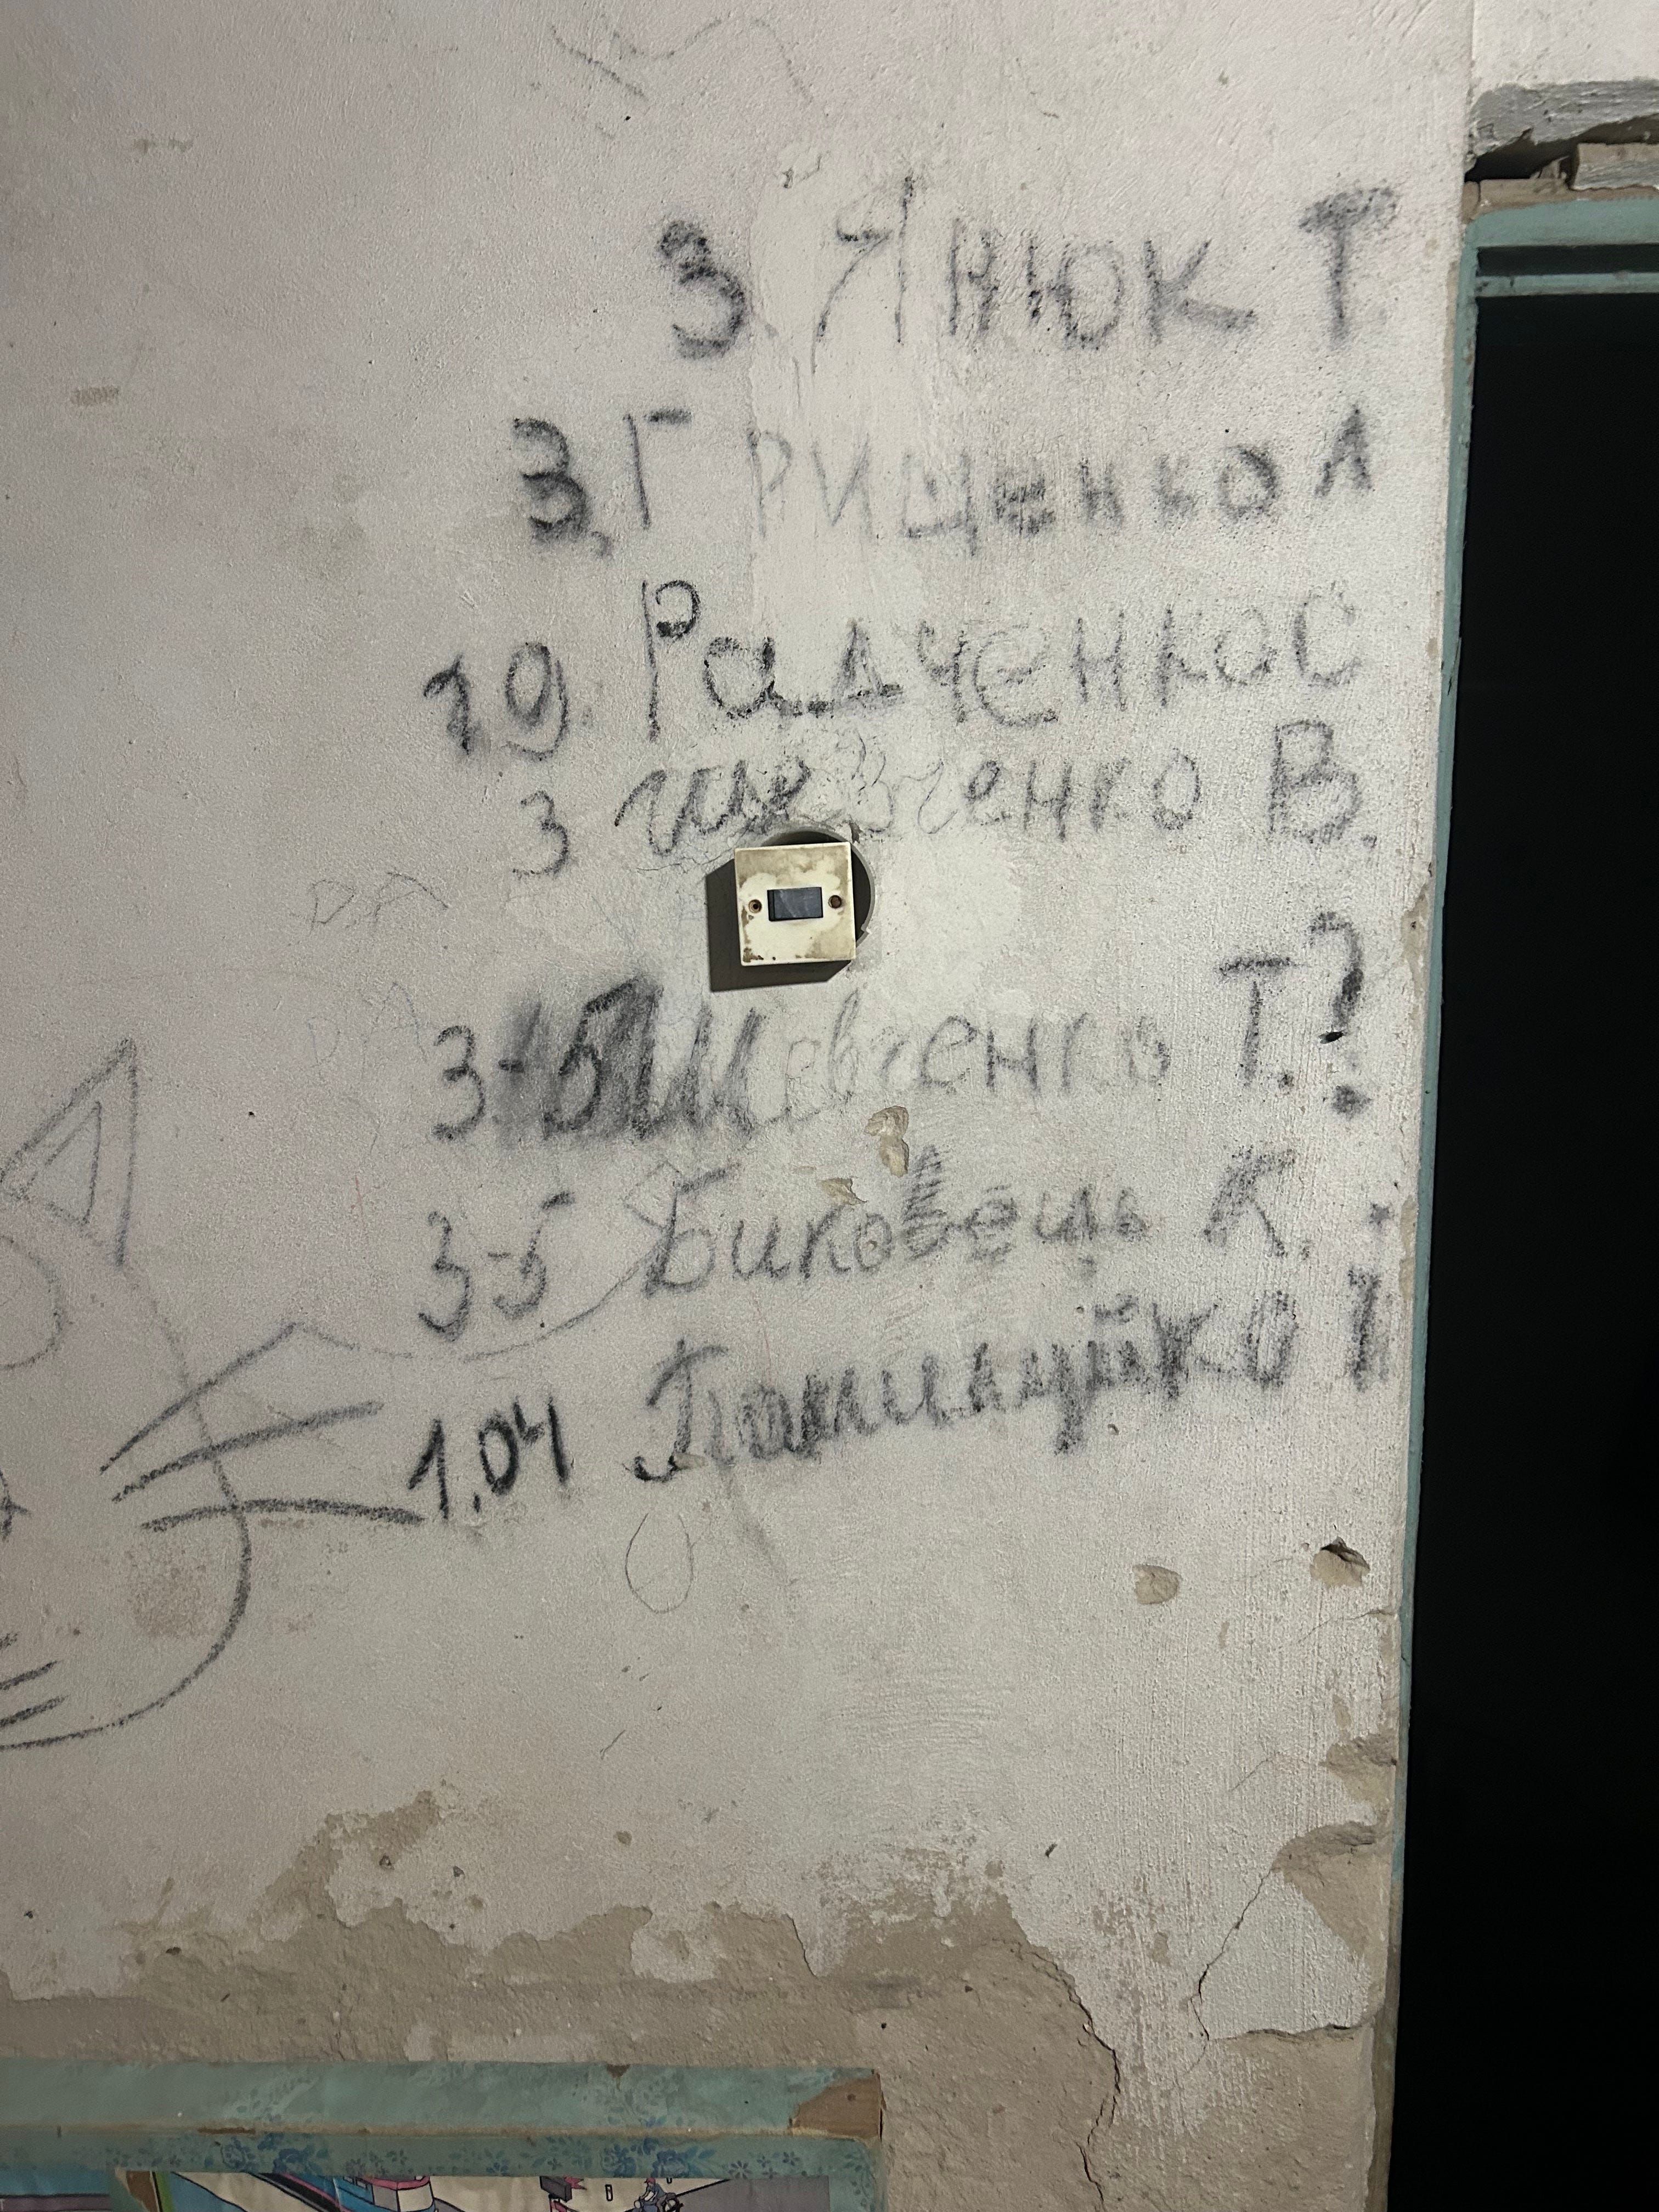 3. Янюк Т.
3, Грищенко Л
19. Радченко С
3 Шевченко В.
РА
РА
3-5 Шевченко Т. ?
3-5 Биковець К.
1.04 І